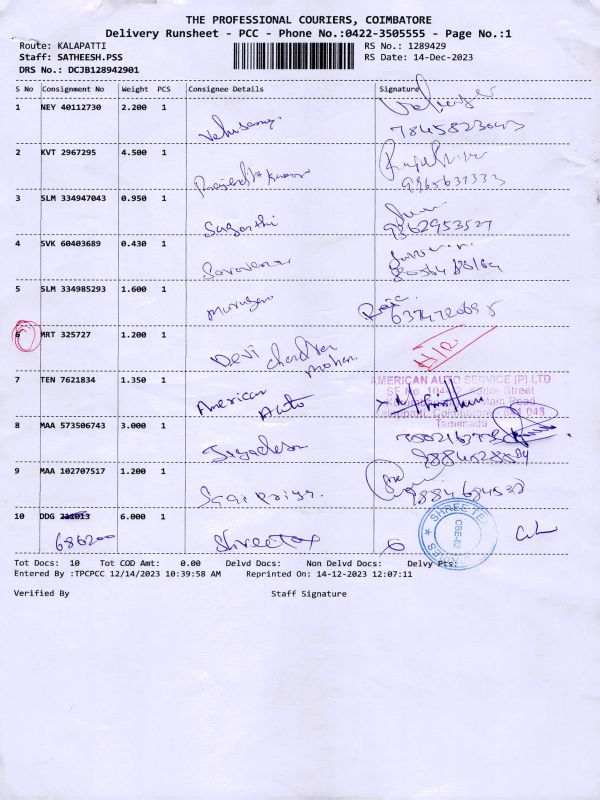 THE PROFESSIONAL COURIERS, COIMBATORE
Delivery Runsheet - PCC - Phone No.:0422-3505555 - Page No.:1
Route: KALAPATTI
RS No.: 1289429
Staff: SATHEESH.PSS
RS Date: 14-Dec-2023
DRS No.: DCJB128942901
S No Consignment No Weight PCS Consignee Details Signature
1 NEY 40112730 2.200 1
Velusamy
2 KVT 2967295 4.500 1
Rajendra Kumar
3 SLM 334947043 0.950 1
Sagonthi
9362953527
4 SVK 60403689 0.430 1
Saravanan
5 SLM 334985293 1.600 1
Murugan
6 MRT 325727 1.200 1
Devi Chandra
Mohan
7 TEN 7621834 1.350 1
American
Auto
AMERICAN AUTO SERVICE (P) LTD
Tamilnadu
8 MAA 573506743 3.000 1
Jeyadesn
9 MAA 102707517 1.200 1
Sasi Priya.
9884684538
10 DDG 211013 6.000 1
686200
Shreetex
SHREETE
CBE-62
Tot Docs: 10 Tot COD Amt: 0.00 Delvd Docs: Non Delvd Docs: Delvy Pts:
Entered By :TPCPCC 12/14/2023 10:39:58 AM Reprinted On: 14-12-2023 12:07:11
Verified By Staff Signature